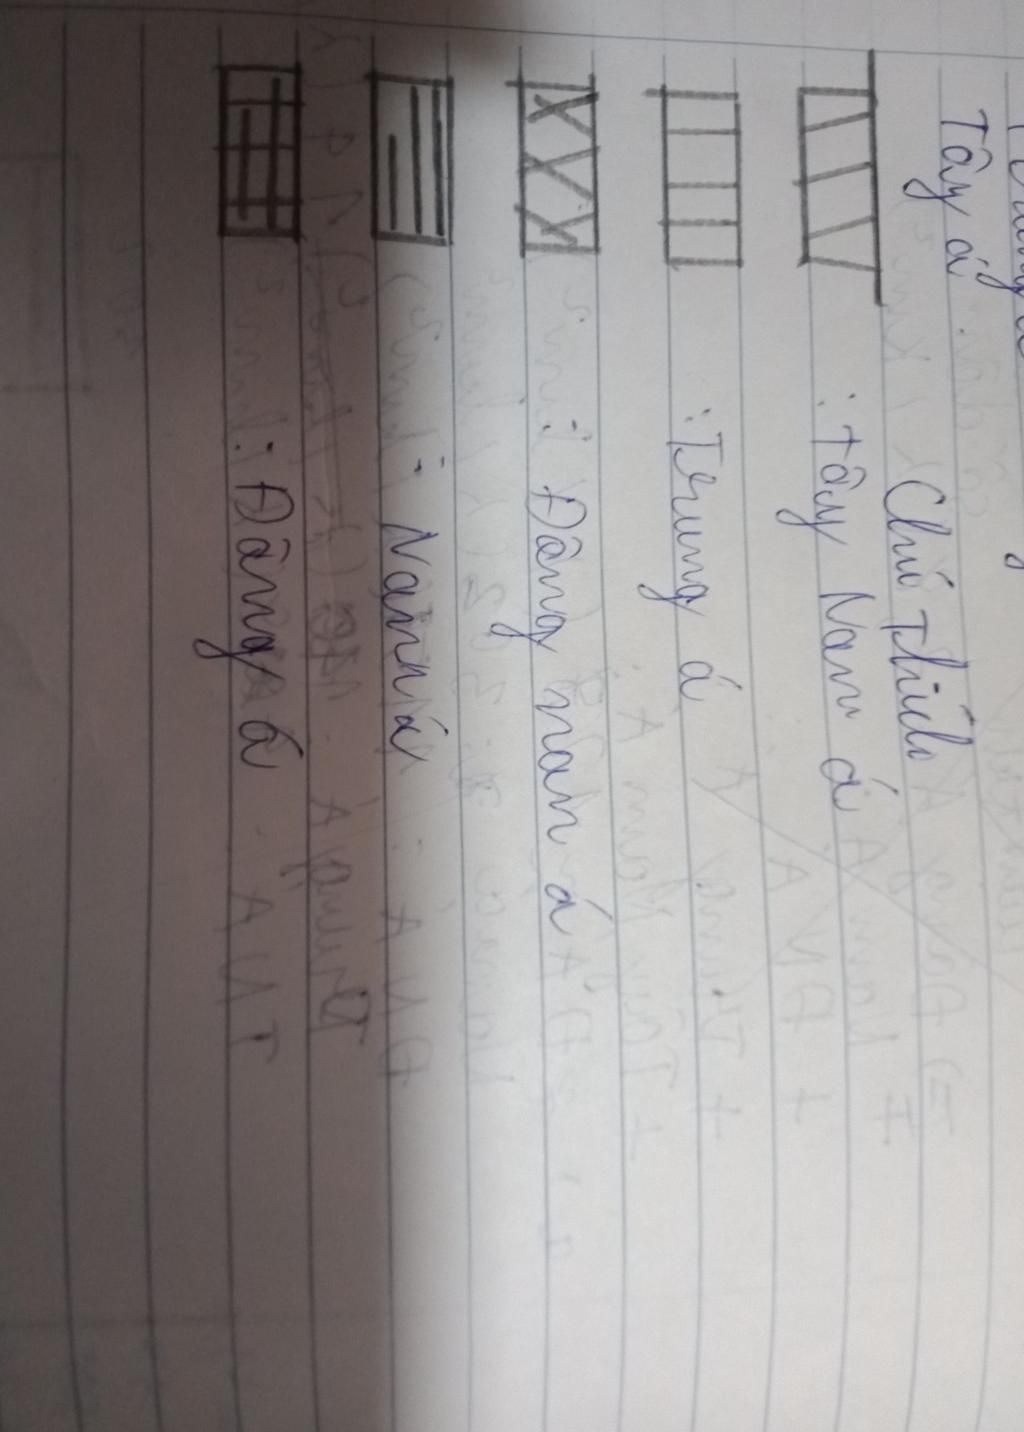 Tây á
Chú thích
: Tây Nam á
: Trung á
: Đông nam á
: Nam á
: Đông á